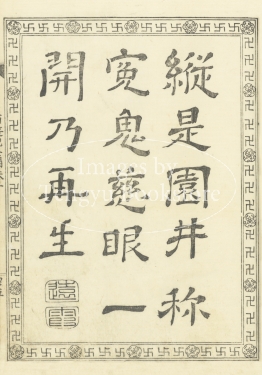 縱是園井称
冤鬼慈眼一
開乃再生
Images by
Tengyu Bookstore